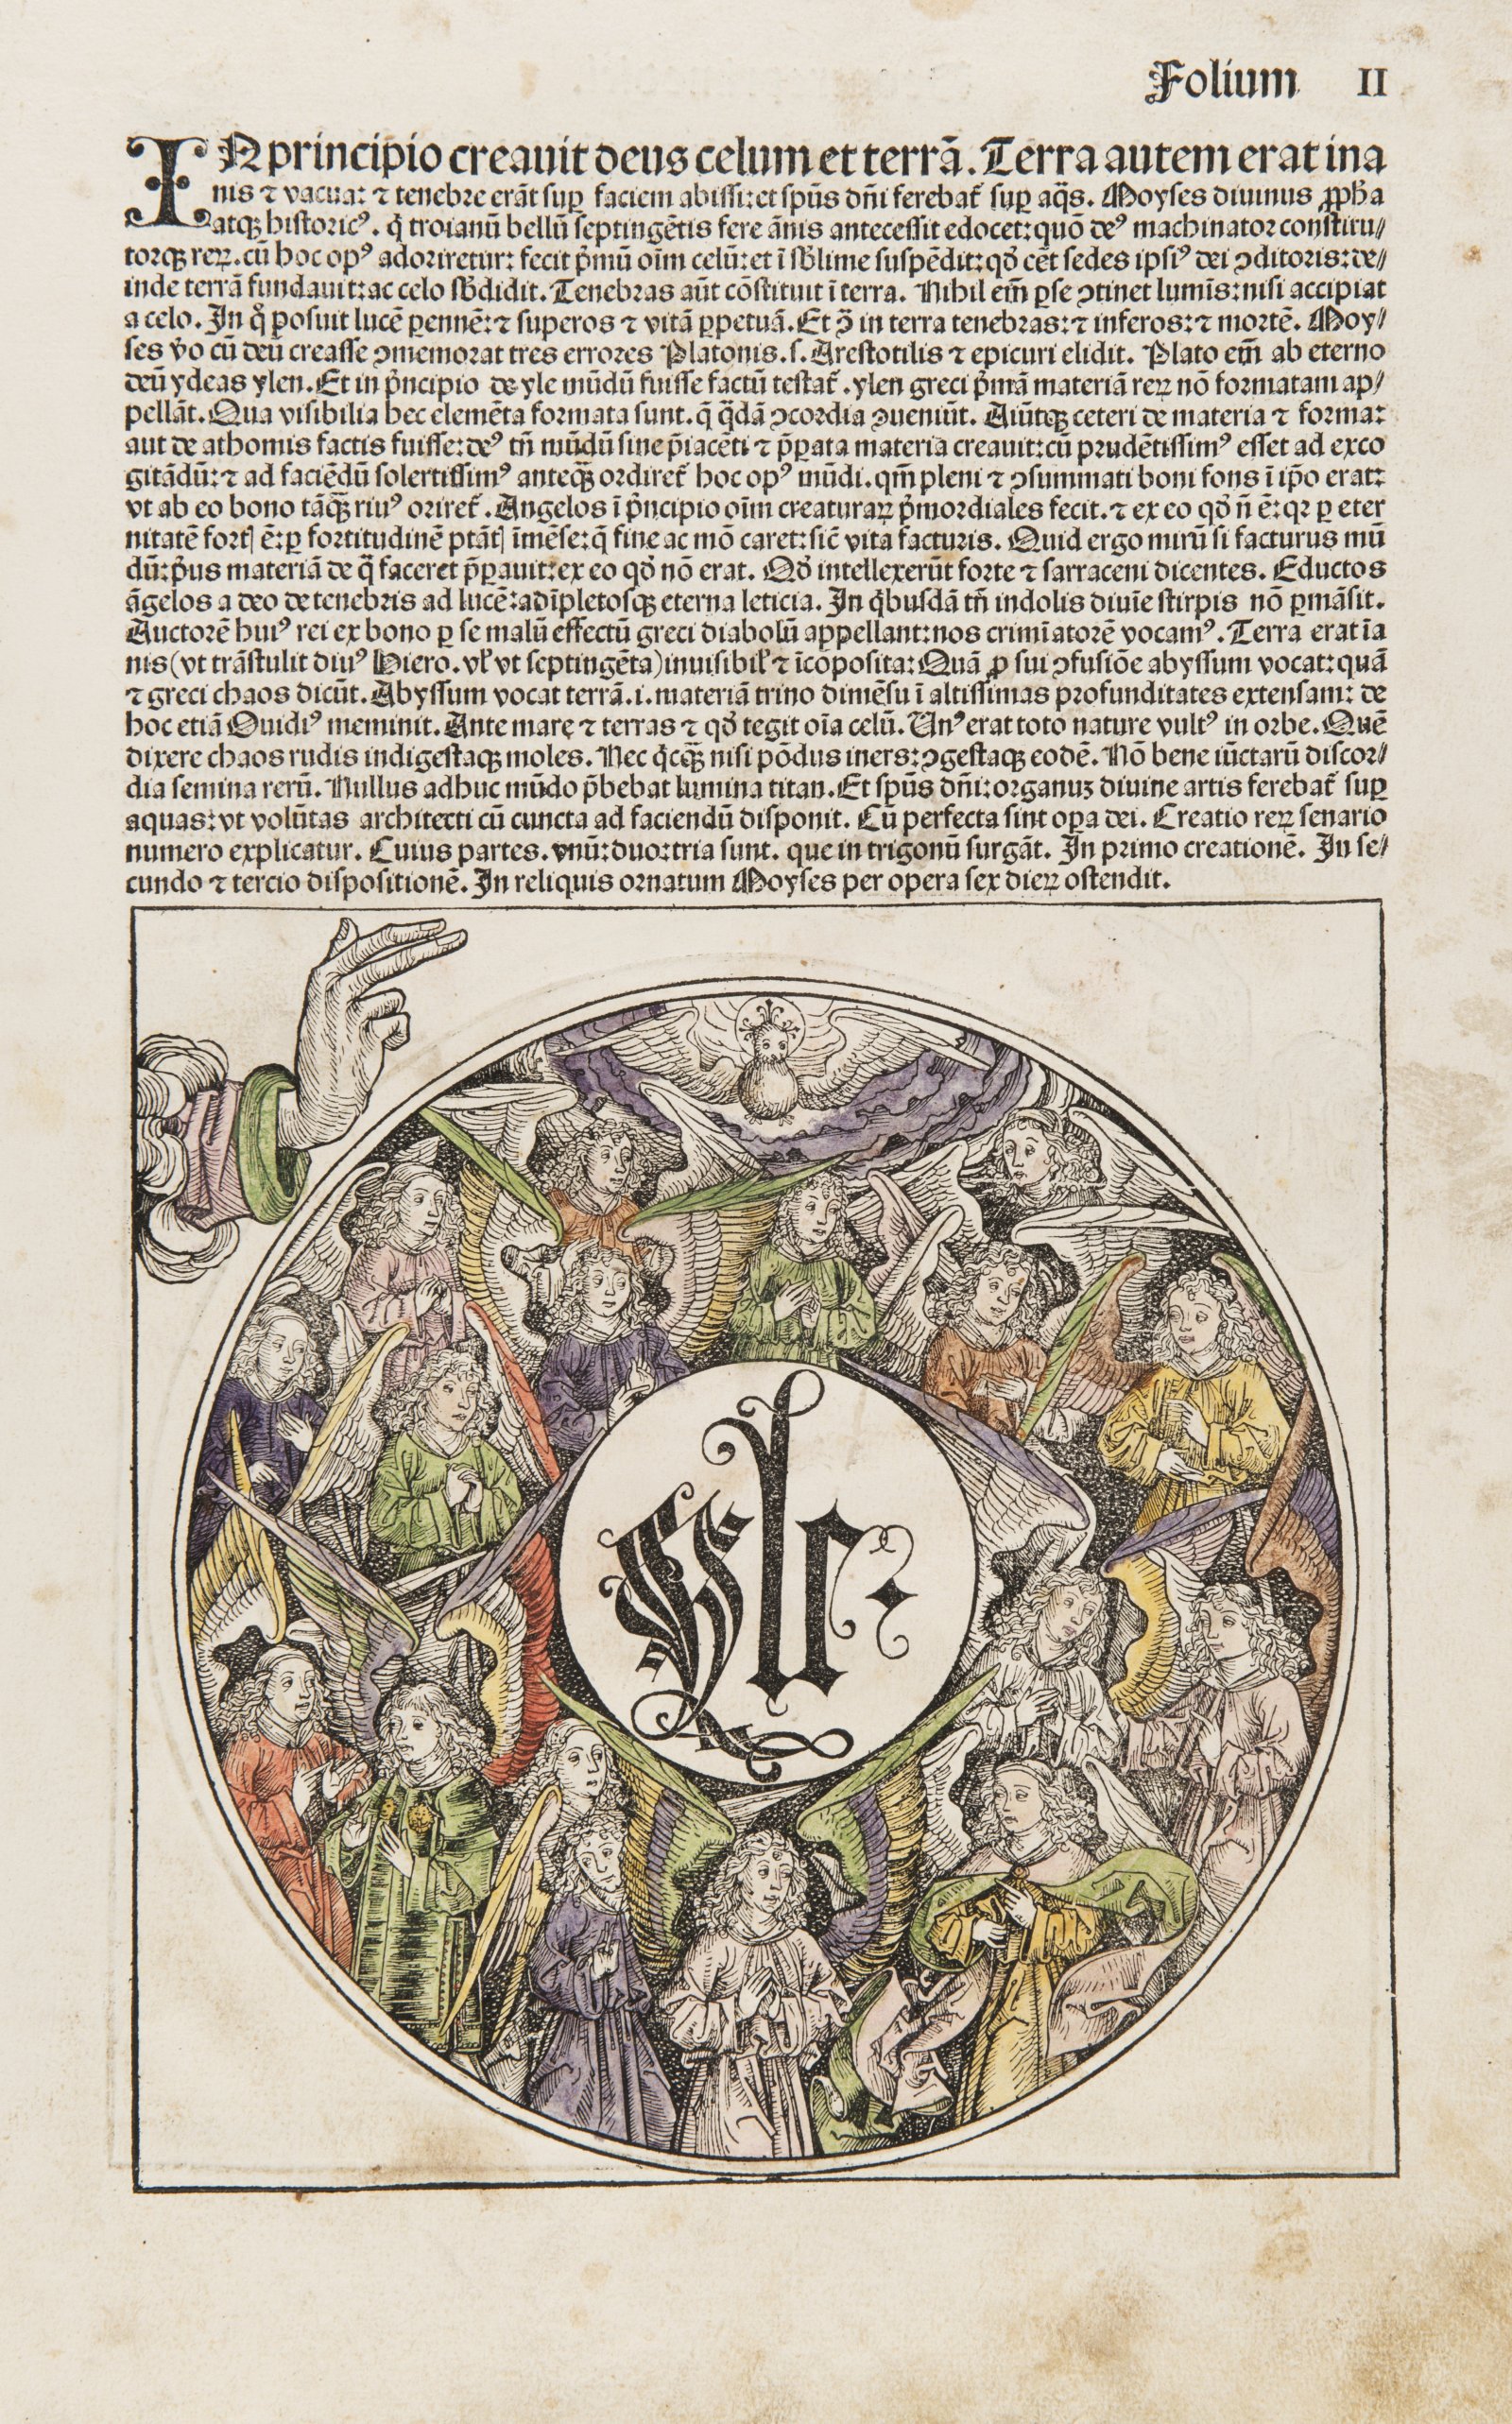 Folium II
IN principio creauit deus celum et terrā. Terra autem erat ina
nis ⁊ vacua: ⁊ tenebre erāt sup̱ faciem abissi: et spūs dn̄i ferebat᷑ sup̱ aq̄s. Moyses diuinus ꝓpha
atqꝫ historicꝰ. q̇ troianū bellū septingētis fere ānis antecessit edocet: quō deꝰ machinator constitu/
torqꝫ reꝝ. cū hoc opꝰ adoriretur: fecit p̓mū oīm celū: et ī sb̓lime suspēdit: qd̓ cēt sedes ipsiꝰ dei ↄditoris: de/
inde terrā fundauit: ac celo sb̓didit. Tenebras aūt cōstituit ī terra. Nihil em̄ ꝑse ↄtinet lumīs: nisi accipiat
a celo. In q̓ posuit lucē ꝑennē: ⁊ superos ⁊ vitā ꝑpetuā. Et ↄ̄ in terra tenebras: ⁊ inferos: ⁊ mortē. Moy/
ses v̓o cū deū creasse ↄmemorat tres errores Platonis. s. Arestotilis ⁊ epicuri elidit. Plato em̄ ab eterno
deū ydeas ylen. Et in p̓ncipio de yle mūdū fuisse factū testat᷑. ylen greci p̓mā materiā reꝝ nō formatam ap/
pellāt. Qua visibilia hec elemēta formata sunt. q̄ q̄dā ↄcordia ↄueniūt. Aiūtqꝫ ceteri de materia ⁊ forma:
aut de athomis factis fuisse: deꝰ tn̄ mūdū sine p̄iacēti ⁊ p̄ꝑata materia creauit: cū prudētissimꝰ esset ad exco
gitādū: ⁊ ad faciēdū solertissimꝰ anteqꝫ̄ ordiret᷑ hoc opꝰ mūdi. qm̄ pleni ⁊ ↄsummati boni fons ī ip̄o erat:
vt ab eo bono tāqꝫ̄ riuꝰ oriret᷑. Angelos ī p̓ncipio oīm creaturaꝝ p̓mordiales fecit. ⁊ ex eo qd̓ n̄ ē: qꝛ ꝑ eter
nitatē fortꝭ ē: ꝑ fortitudinē ptātꝭ īmēse: q̄ fine ac mō caret: sic̄ vita facturis. Quid ergo mirū si facturus mū
dū: p̓us materiā de q̄ faceret p̄ꝑauit: ex eo qd̓ nō erat. Qd̓ intellexerūt forte ⁊ sarraceni dicentes. Eductos
āgelos a deo de tenebris ad lucē: adīpletosqꝫ eterna leticia. In q̇busdā tn̄ indolis diuīe stirpis nō ꝑmāsit.
Auctorē huiꝰ rei ex bono ꝑ se malū effectū greci diabolū appellant: nos crimīatorē vocamꝰ. Terra erat īa
nis (vt trāstulit diuꝰ Hiero. vl̓ vt septingēta) inuisibil̓ ⁊ īcōposita: Quā ꝓ sui ↄfusiōe abyssum vocat: quā
⁊ greci chaos dicūt. Abyssum vocat terrā. i. materiā trino dimēsu ī altissimas profunditates extensam: de
hoc etiā Ouidiꝰ meminit. Ante marę ⁊ terras ⁊ qd̓ tegit oīa celū. Vnꝰ erat toto nature vultꝰ in orbe. Quē
dixere chaos rudis indigestaqꝫ moles. Nec q̇cqꝫ̄ nisi pōdus iners: ↄgestaqꝫ eodē. Nō bene iūctarū discor/
dia semina rerū. Nullus adhuc mūdo p̄bebat lumina titan. Et spūs dn̄i: organuꝫ diuine artis ferebat᷑ sup̱
aquas: vt volūtas architecti cū cuncta ad faciendū disponit. Cū perfecta sint oꝑa dei. Creatio reꝝ senario
numero explicatur. Cuius partes. vnū: duo: tria sunt. que in trigonū surgāt. In primo creationē. In se/
cundo ⁊ tercio dispositionē. In reliquis ornatum Moyses per opera sex dieꝝ ostendit.